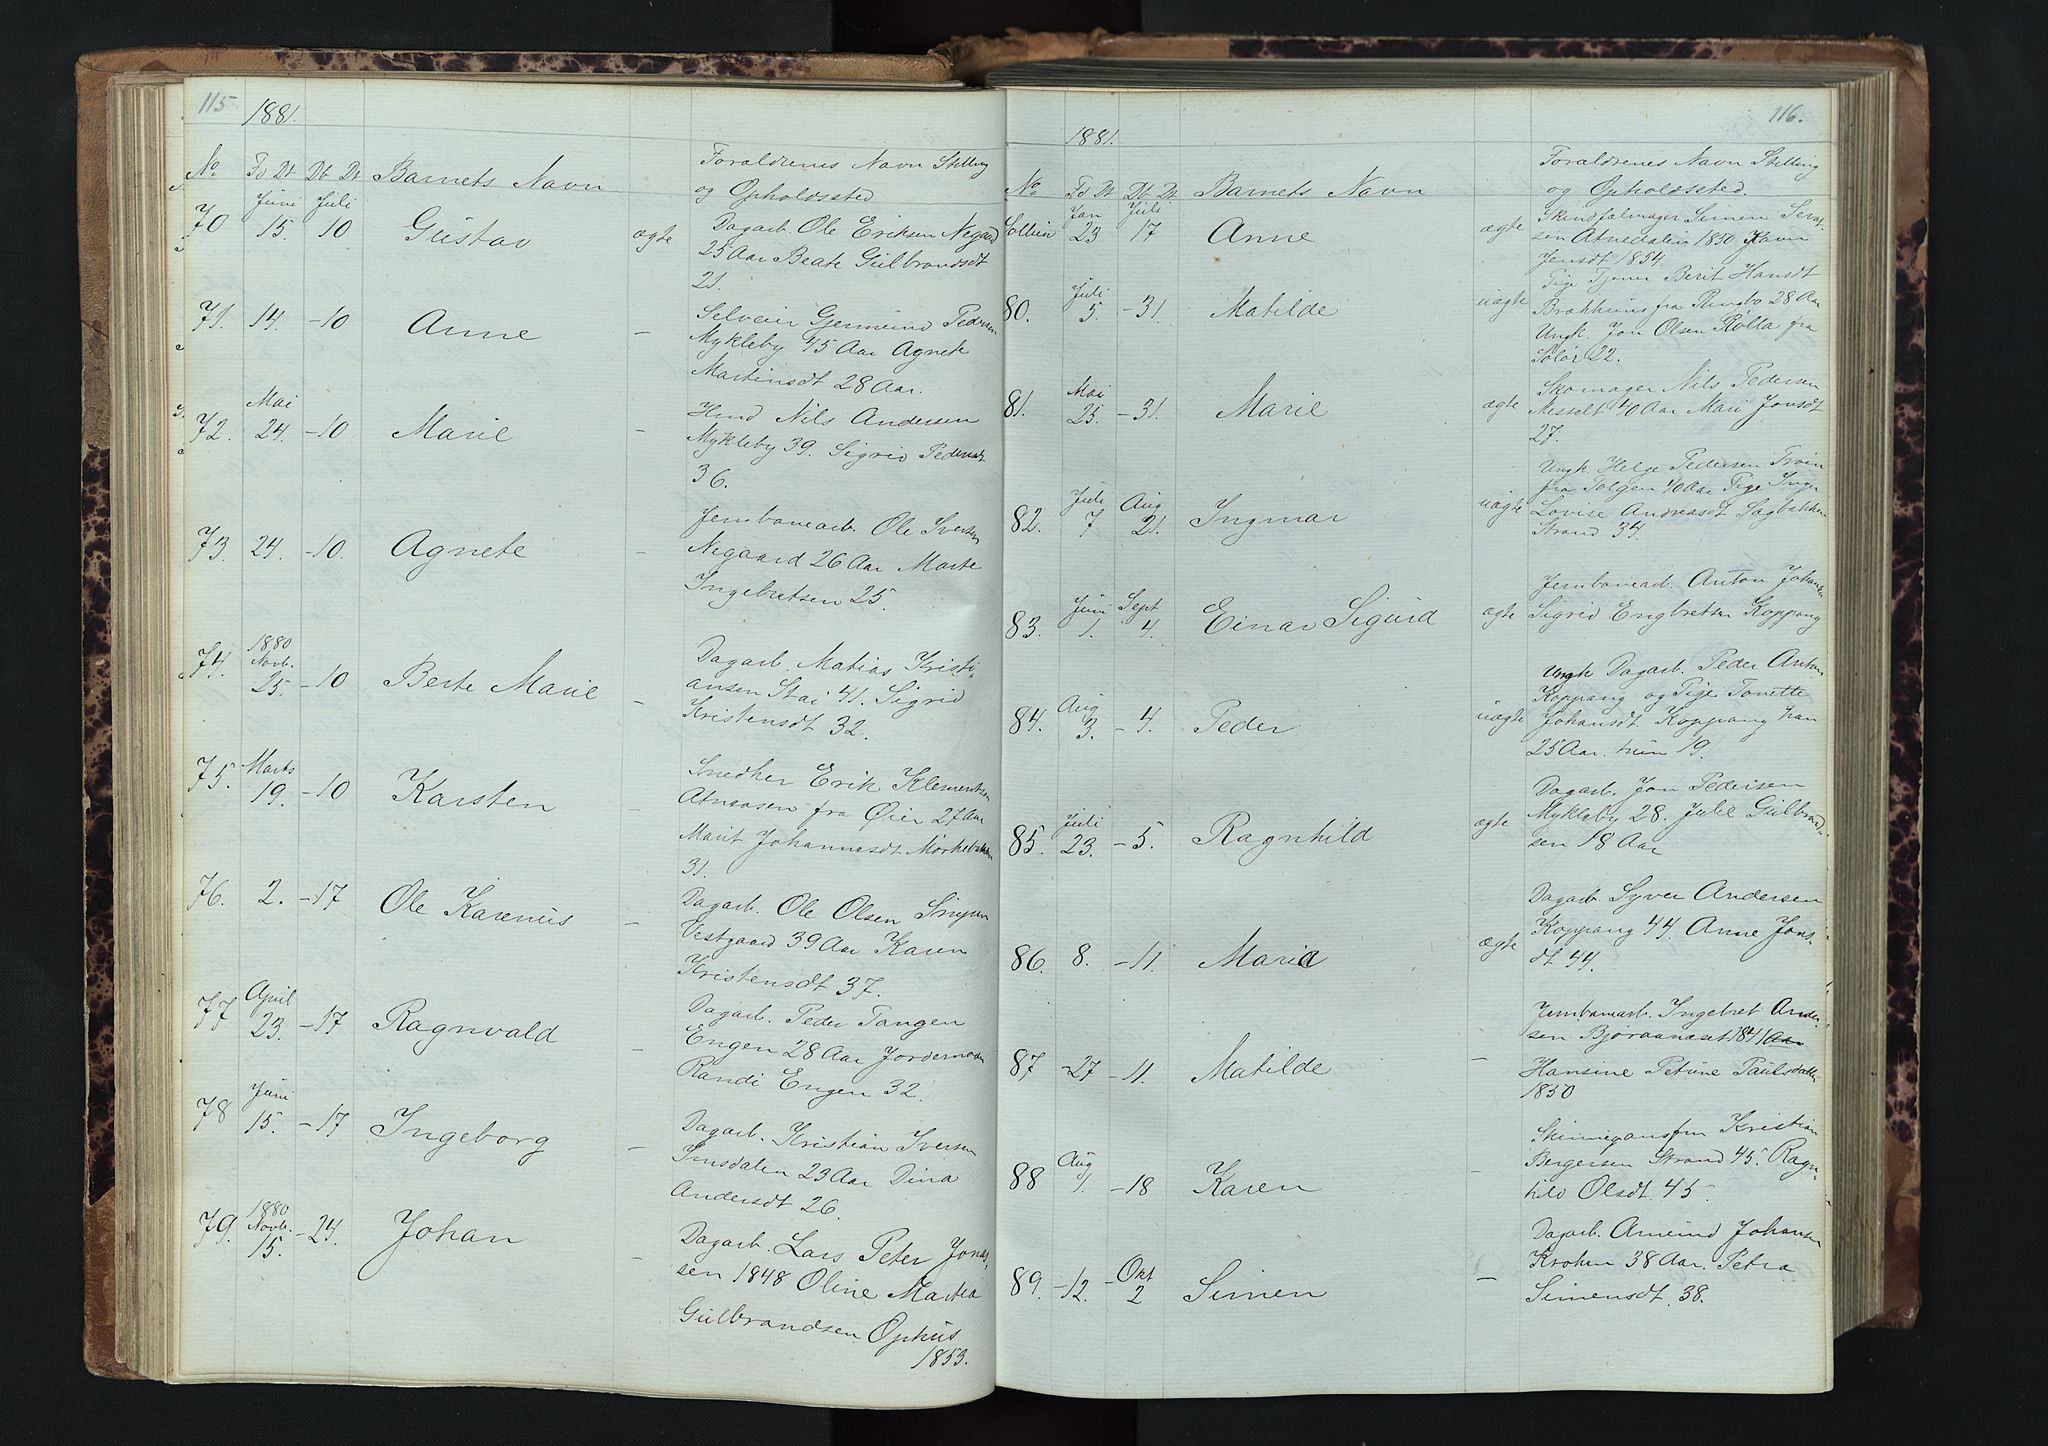 115
1881.
No Fd Dt Dt Dt Barnets Navn Foraldrenes Navn Stilling
og Opholdssted
Juni Juli
70 15. 10 Gustav ægte Dagarb. Ole Eriksen Negaard
25 Aar Beate Gulbrandsdt
21.
71. 14. -10 Anne - Selveier Gjermund Pedersen
Mykleby 45 Aar Agnete
Martinsdt 28 Aar.
Mai
72. 24. -10 Marie - Hmd Nils Andersen
Mykleby 39. Sigrid Pedersdt
36.
73. 24. -10. Agnete - Jernbanearb. Ole Iversen
Negaard 26 Aar Marte
Ingebretsen 25.
1880
Novb.
74. 25. -10 Berte Marie - Dagarb. Matias Kristi-
ansen Stai 41. Sigrid
Kristensdt 32.
Marts
75. 19. -10 Karsten - Smedher Erik Klementsen
Atneosen fra Øier 27 Aar
Marit Johannesdt Mørkebakken
31.
76. 2. -17 Ole Karenus - Dagarb. Ole Olsen
Vestgaard 39 Aar Karen
Kristensdt 37.
April
77 23. -17 Ragnvald - Dagarb. Peder Tangen
Engen 28 Aar Jordemoder
Randi Engen 32.
Juni
78 15. -17 Ingeborg - Dagarb. Kristian Iversen
Imsdalen 23 Aar Dina
Andersdt 26.
1880
Novb.
79. 15. -24. Johan - Dagarb. Lars Peter Jonas-
sen 1848 Oline Martea
Gulbrandsen Ophus
1853.
116.
1881.
No Fd Dt Dt Dt Barnets Navn Foraldrenes Navn Stilling
og Opholdssted.
Jan Juli
Sollien 23 17 Anne ægte Skindfelmager Simen
sen Atnedalen 1850 Karn
Jensdt 1854
Juli
80. 5. -31. Matilde uægte Pige Tjener Berit Hansdt
Brækhuus fra Ringbo 28 Aar
Ungk. Jon Olsen Rolta fra
Solør 22.
Mai
81. 25. -31. Marie ægte Skomager Nils Pedersen
Messelt 40 Aar Mari Jonsdt
27.
Juli Aug
82. 7 21. Ingmar uægte Ungk. Helge Pedersen Troen
fra Tolgen 40 Aar Pige Inger
Lovise Andreasdt Sagbakken
Strand 34.
Juni Sept
83. 1. 4. Einar Sigurd ægte Jernbanearb. Anton Johansen
Sigrid Engbretsen Koppang
Aug
84. 3. -4. Peder uægte Ungk Dagarb. Peder Anton
Koppang og Pige Tonette
Johansdt Koppang han
25 Aar. hun 19.
Juli
85. 23. -5. Ragnhild ægte Dagarb. Jon Pedersen
Mykleby 28. Julie Gulbrand-
sen 18 Aar
86. 8. -11. Maria ægte Dagarb. Syver Andersen
Koppang 44. Anne Jons-
dt 44.
87 -27 -11. Matilde - Jernbanearb. Ingebret Ander-
sen Bjøraanæset 1841 Aar
Hansine Petrine Paulsdatter
1850
Aug
88 1. -18 Karen - Kristian
Bergersen Strand 45. Ragn-
hild Olsdt. 45.
Okt
89. -12. -2 Simen - Dagarb. Amund Johansen
Kroken 38 Aar. Petra
Simensdt. 38.